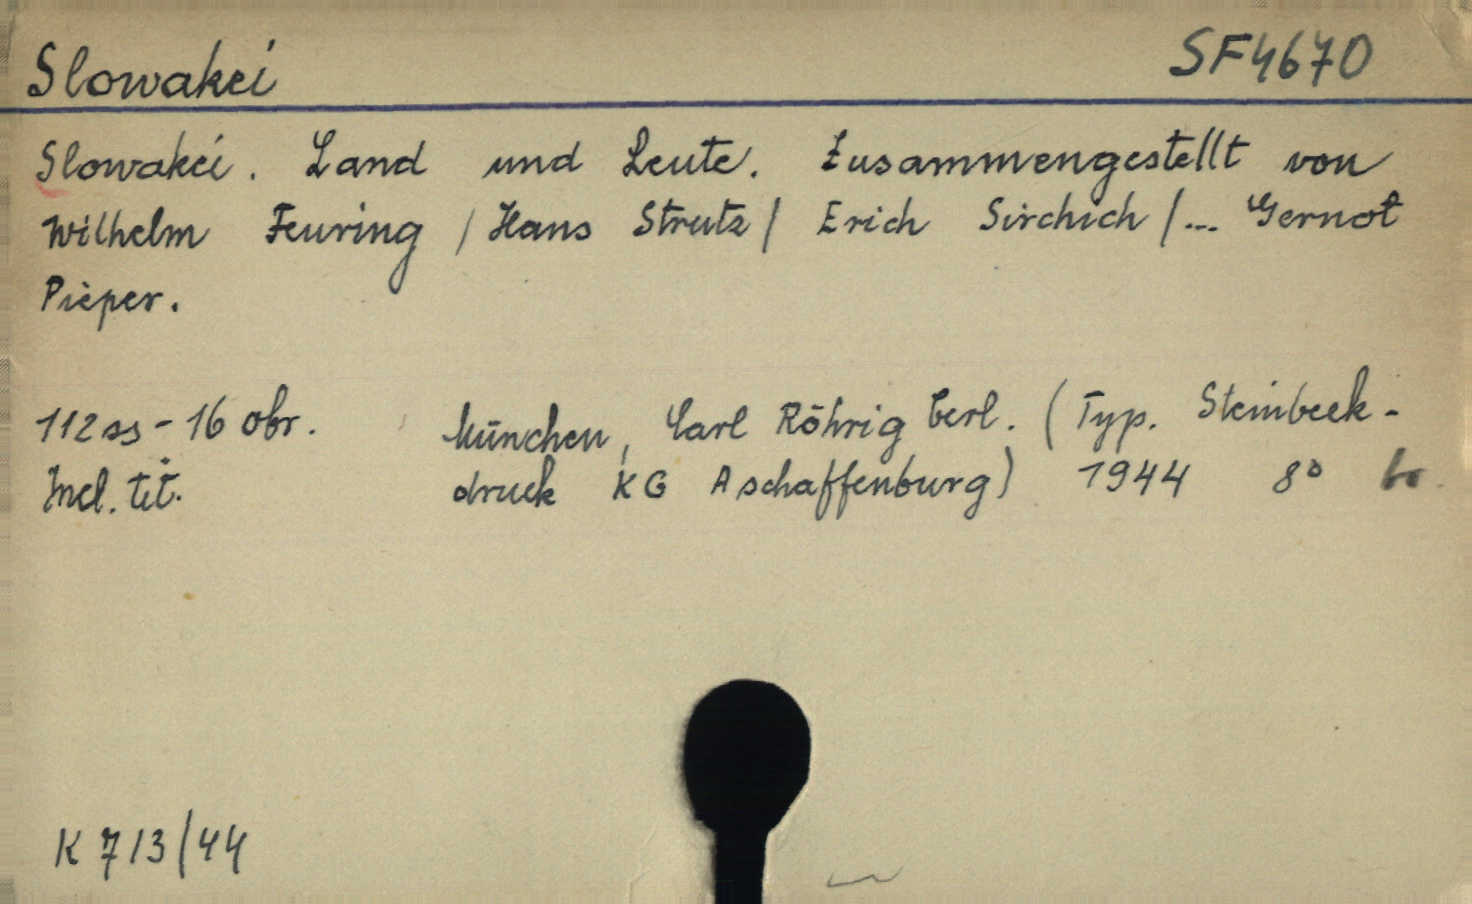 Slowakei SF4670
Slowakei. Land und Leute. Zusammengestellt von
Wilhelm Feuring / Hans Strutz / Erich Sirchich /... Gernot
Pieper.
112 ss - 16 obr. München, Carl Röhrig Verl. (Typ. Steinbeck-
Incl. tit. druck KG Aschaffenburg) 1944 8° br.
K 713/44